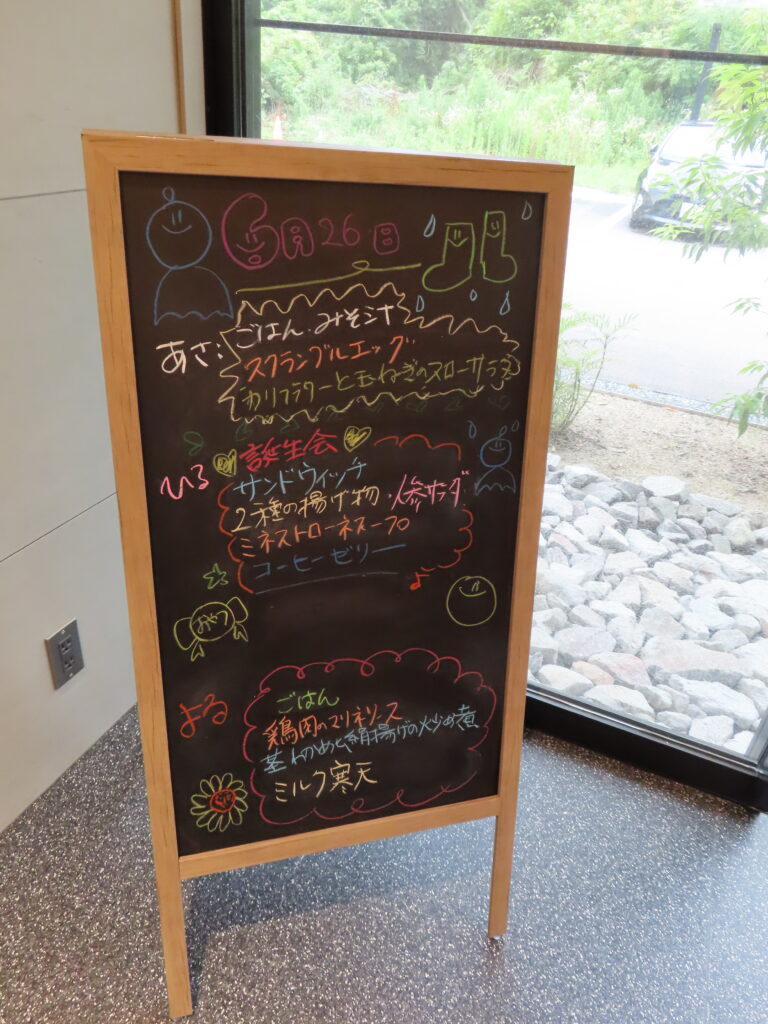 6月26日
あさ:
ごはん.みそ汁
スクランブルエッグ
カリフラワーと玉ねぎのスローサラダ
ひる
誕生会
サンドウィッチ
2種の揚げ物・人参サラダ
ミネストローネスープ
コーヒーゼリー
おやつ
よる
ごはん
鶏肉のマリネソース
茎わかめと絹揚げの炒め煮
ミルク寒天